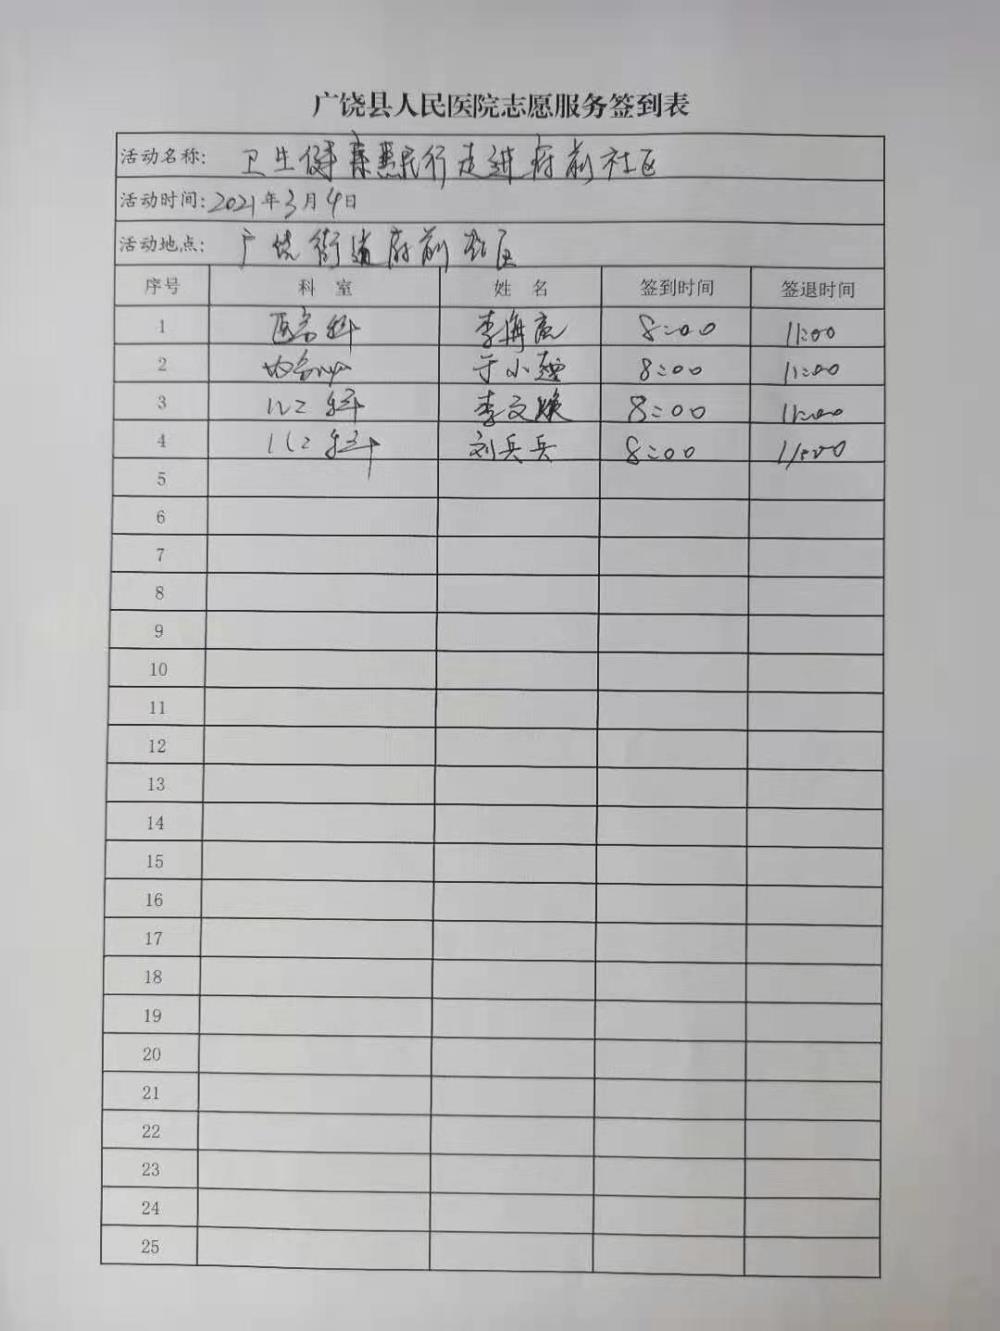 广饶县人民医院志愿服务签到表
活动名称: 卫生健康惠民行走进府前社区
活动时间: 2021年3月4日
活动地点: 广饶街道府前社区
序号 科 室 姓 名 签到时间 签退时间
1 医务科 李海 8:00 11:00
2 于小 8:00 11:00
3 科 李文焕 8:00 11:00
4 科 刘兵兵 8:00 11:00
5
6
7
8
9
10
11
12
13
14
15
16
17
18
19
20
21
22
23
24
25